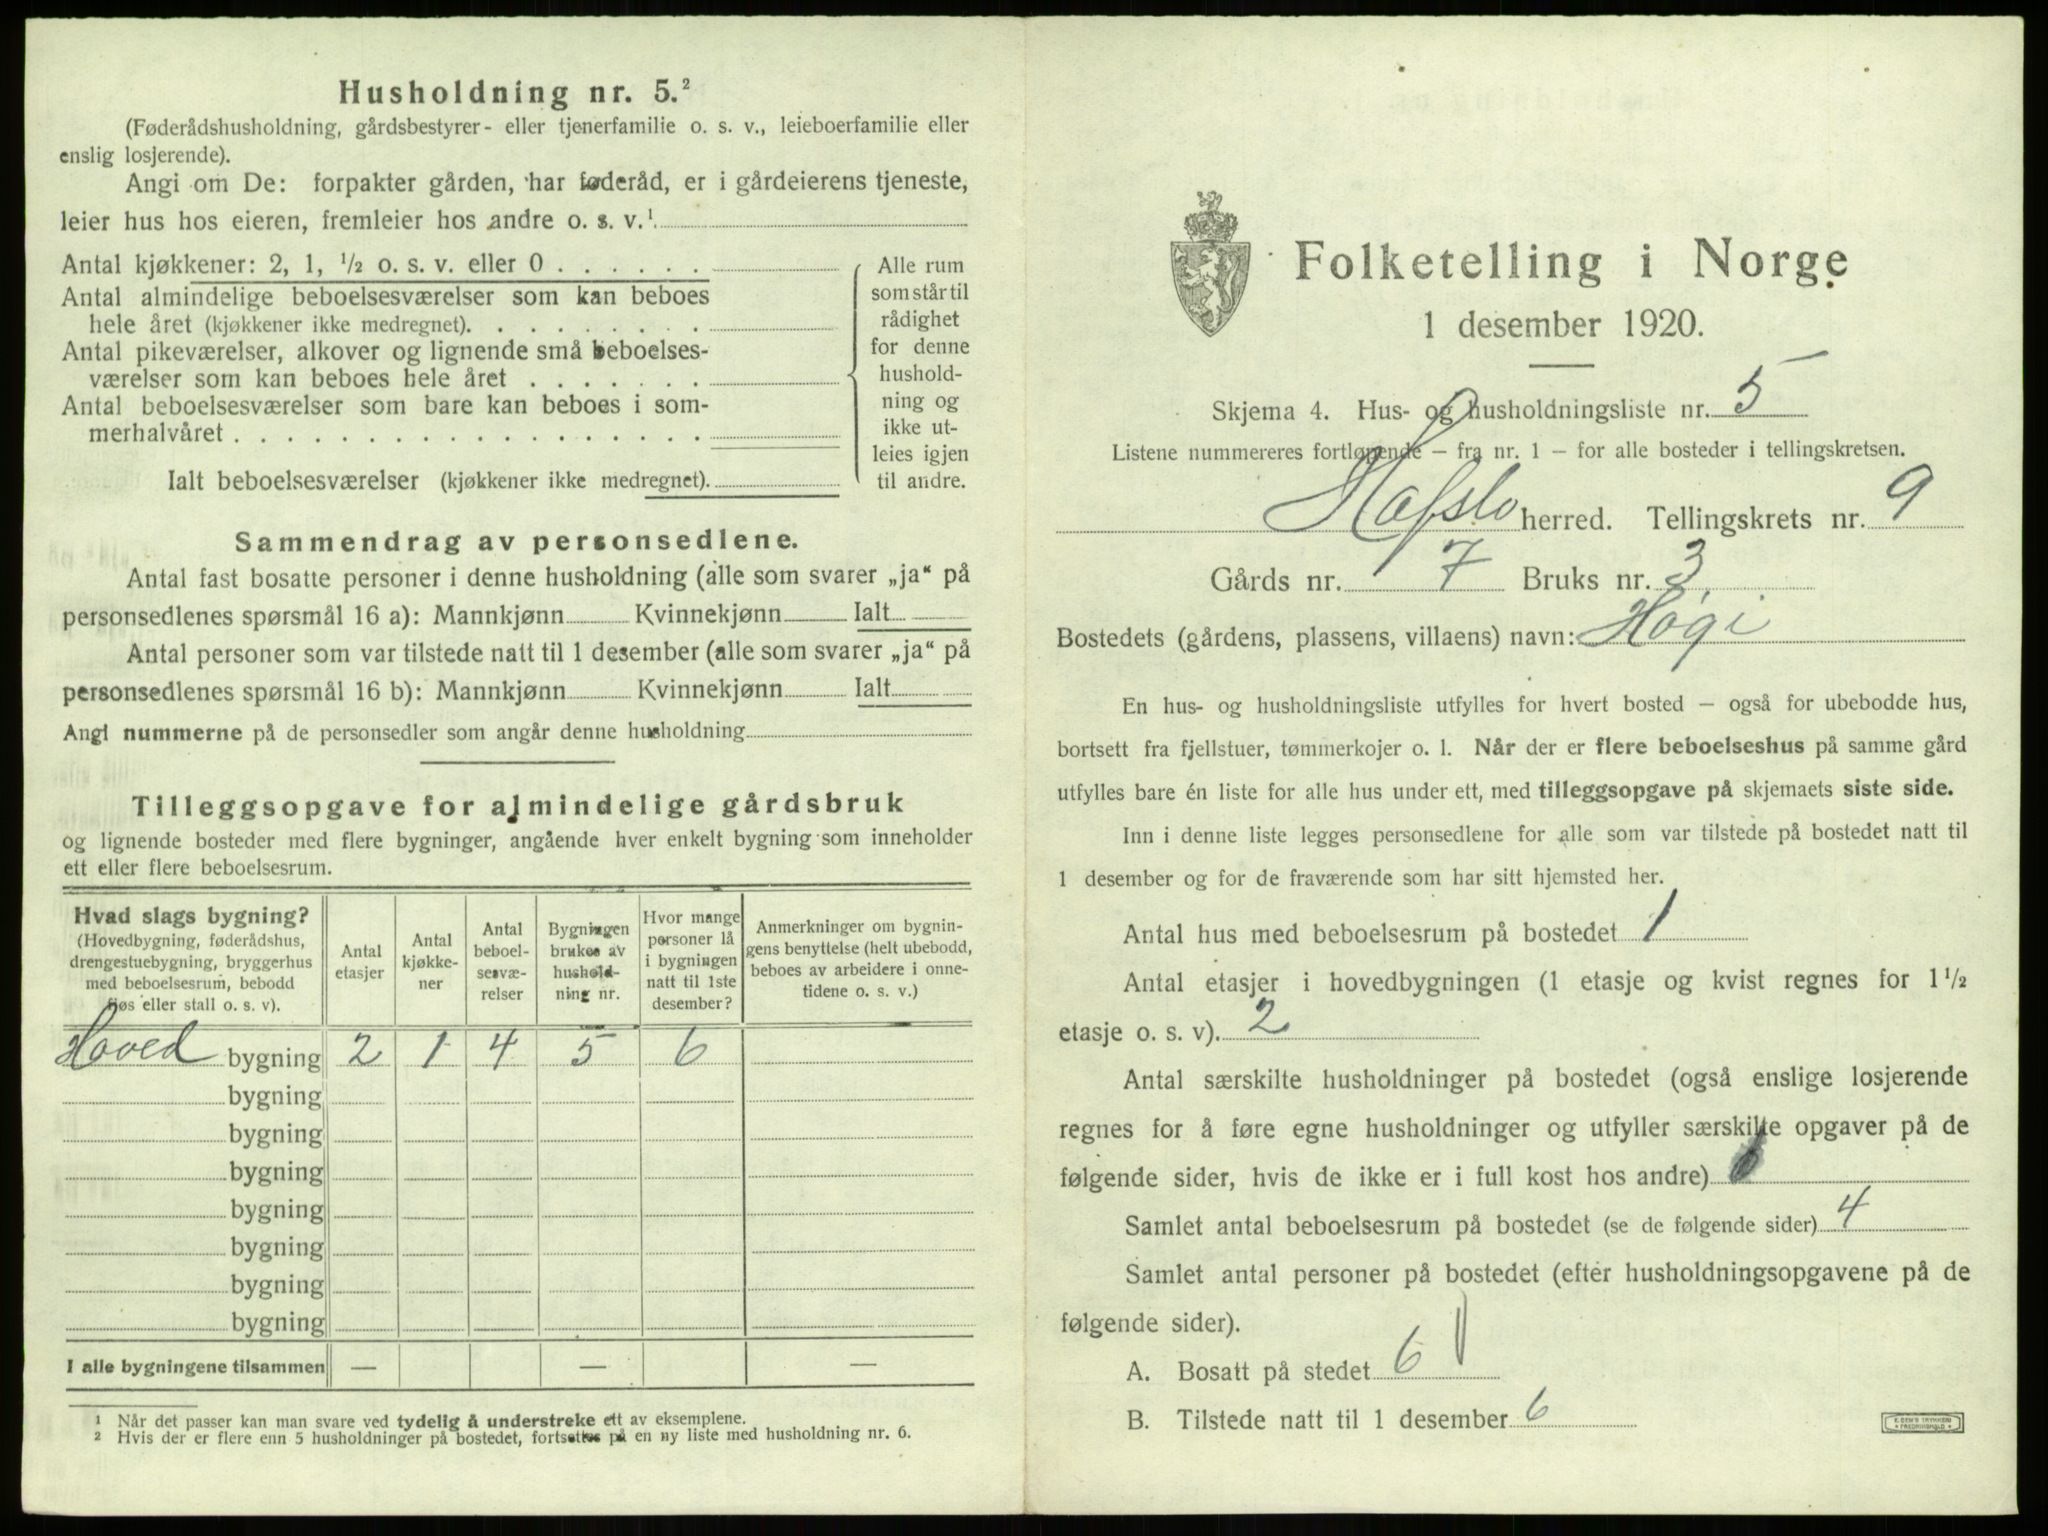 Husholdning nr. 5.²
(Føderådshusholdning, gårdsbestyrer- eller tjenerfamilie o. s. v., leieboerfamilie eller
enslig losjerende).
Angi om De: forpakter gården, har føderåd, er i gårdeierens tjeneste,
leier hus hos eieren, fremleier hos andre o. s. v.¹
Antal kjøkkener: 2, 1, ½ o. s. v. eller 0
Antal almindelige beboelsesværelser som kan beboes
hele året (kjøkkener ikke medregnet).
Antal pikeværelser, alkover og lignende små beboelses-
værelser som kan beboes hele året
Antal beboelsesværelser som bare kan beboes i som-
merhalvåret
Ialt beboelsesværelser (kjøkkener ikke medregnet).
Alle rum
som står til
rådighet
for denne
hushold-
ning og
ikke ut-
leies igjen
til andre.
Sammendrag av personsedlene.
Antal fast bosatte personer i denne husholdning (alle som svarer „ja“ på
personsedlenes spørsmål 16 a): Mannkjønn Kvinnekjønn Ialt
Antal personer som var tilstede natt til 1 desember (alle som svarer „ja“ på
personsedlenes spørsmål 16 b): Mannkjønn Kvinnekjønn Ialt
Angi nummerne på de personsedler som angår denne husholdning
Tilleggsopgave for almindelige gårdsbruk
og lignende bosteder med flere bygninger, angående hver enkelt bygning som inneholder
ett eller flere beboelsesrum.
Hvad slags bygning?
(Hovedbygning, føderådshus,
drengestuebygning, bryggerhus
med beboelsesrum, bebodd
fjøs eller stall o. s. v).
Antal
etasjer
Antal
kjøkke-
ner
Antal
beboel-
sesvæ-
relser
Bygningen
brukes av
hushold-
ning nr.
Hvor mange
personer lå
i bygningen
natt til 1ste
desember?
Anmerkninger om bygnin-
gens benyttelse (helt ubebodd,
beboes av arbeidere i onne-
tidene o. s. v.)
Hoved bygning 2 1 4 5 6
bygning
bygning
bygning
bygning
bygning
bygning
bygning
I alle bygningene tilsammen — — —
¹ Når det passer kan man svare ved tydelig å understreke ett av eksemplene.
² Hvis der er flere enn 5 husholdninger på bostedet, fortsettes på en ny liste med husholdning nr. 6.
Folketelling i Norge
1 desember 1920.
Skjema 4. Hus- og husholdningsliste nr. 5
Listene nummereres fortløpende — fra nr. 1 — for alle bosteder i tellingskretsen.
Hafslo herred. Tellingskrets nr. 9
Gårds nr. 7 Bruks nr. 3
Bostedets (gårdens, plassens, villaens) navn: Høgi
En hus- og husholdningsliste utfylles for hvert bosted — også for ubebodde hus,
bortsett fra fjellstuer, tømmerkojer o. l. Når der er flere beboelseshus på samme gård
utfylles bare én liste for alle hus under ett, med tilleggsopgave på skjemaets siste side.
Inn i denne liste legges personsedlene for alle som var tilstede på bostedet natt til
1 desember og for de fraværende som har sitt hjemsted her.
Antal hus med beboelsesrum på bostedet 1
Antal etasjer i hovedbygningen (1 etasje og kvist regnes for 1½
etasje o. s. v). 2
Antal særskilte husholdninger på bostedet (også enslige losjerende
regnes for å føre egne husholdninger og utfyller særskilte opgaver på de
følgende sider, hvis de ikke er i full kost hos andre)
Samlet antal beboelsesrum på bostedet (se de følgende sider) 4
Samlet antal personer på bostedet (efter husholdningsopgavene på de
følgende sider).
A. Bosatt på stedet 6
B. Tilstede natt til 1 desember 6